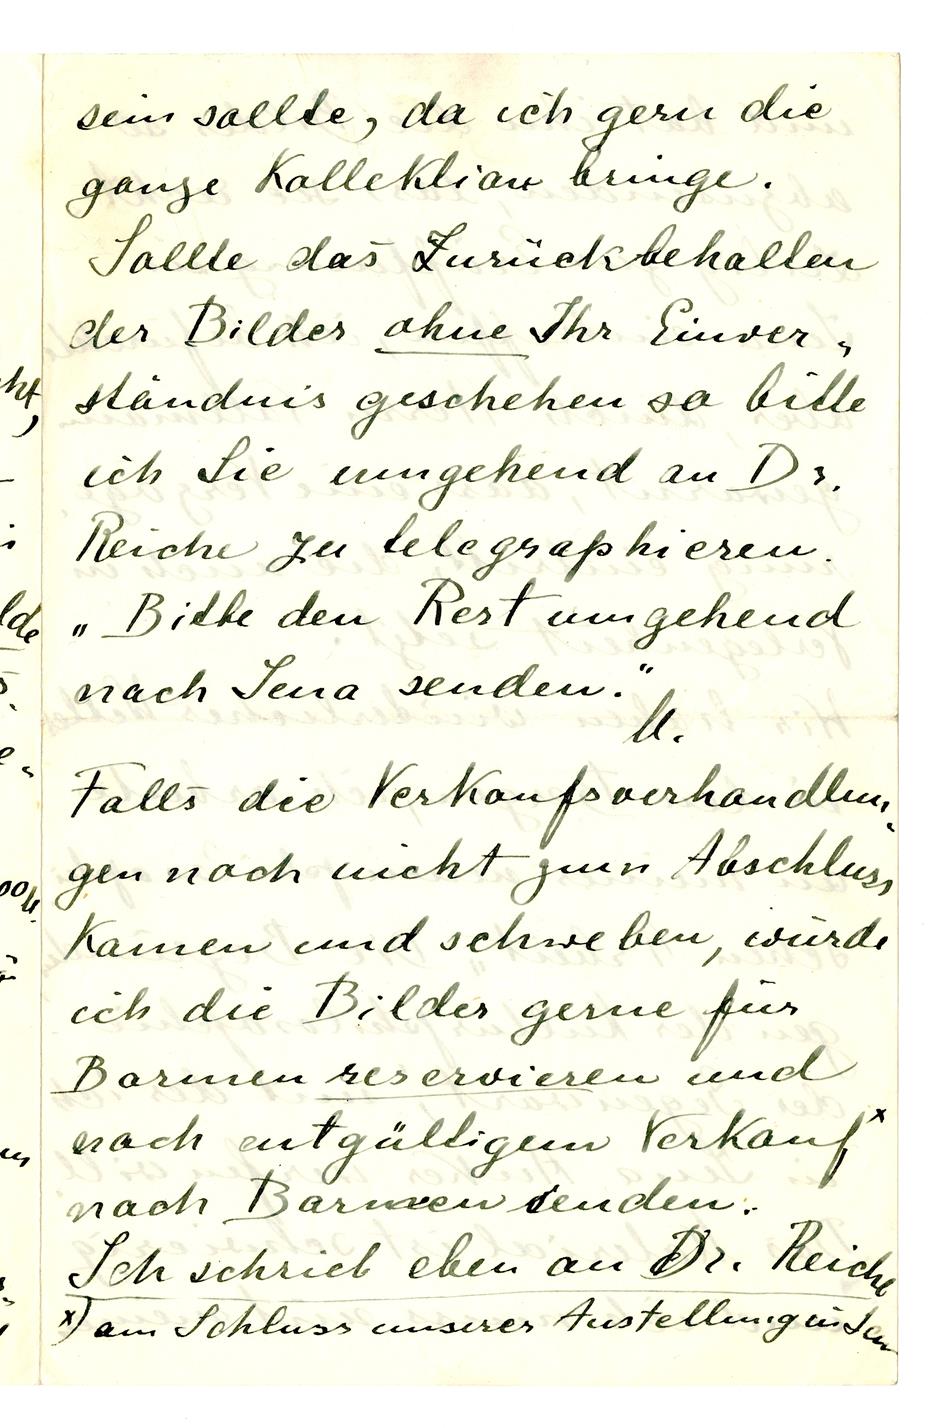 sein sollte, da ich gern die
ganze Kollektion bringe.
Sollte das Zurückbehalten
der Bilder ohne Ihr Einver„
ständnis geschehen so bitte
ich Sie umgehend an Dr.
Reiche zu telegraphieren.
„Bitte den Rest umgehend
nach Jena senden.“
Falls die Verkaufsverhandlun„
gen noch nicht zum Abschluss
kamen und schweben, würde
ich die Bilder gerne für
Barmen reservieren und
nach entgültigem Verkauf x
nach Barmen senden.
Ich schrieb eben an Dr. Reiche
x) am Schluss unserer Austellung in Jena